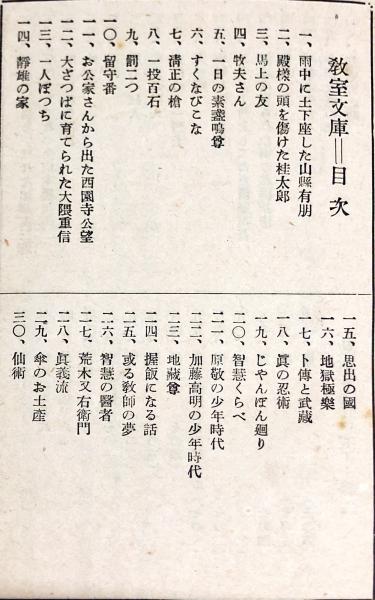 教室文庫＝目次
一、雨中に土下座した山縣有朋
二、殿様の頭を傷けた桂太郎
三、馬上の友
四、牧夫さん
五、一日の素盞嗚尊
六、すくなびこな
七、清正の槍
八、一投百石
九、罰二つ
一〇、留守番
一一、お公家さんから出た西園寺公望
一二、大ざつぱに育てられた大隈重信
一三、一人ぼつち
一四、靜雄の家
一五、思出の國
一六、地獄極樂
一七、卜傳と武藏
一八、眞の忍術
一九、じやんぽん廻り
二〇、智慧くらべ
二一、原敬の少年時代
二二、加藤高明の少年時代
二三、地藏尊
二四、握飯になる話
二五、或る教師の夢
二六、智慧の醫者
二七、荒木又右衞門
二八、眞義流
二九、傘のお土産
三〇、仙術